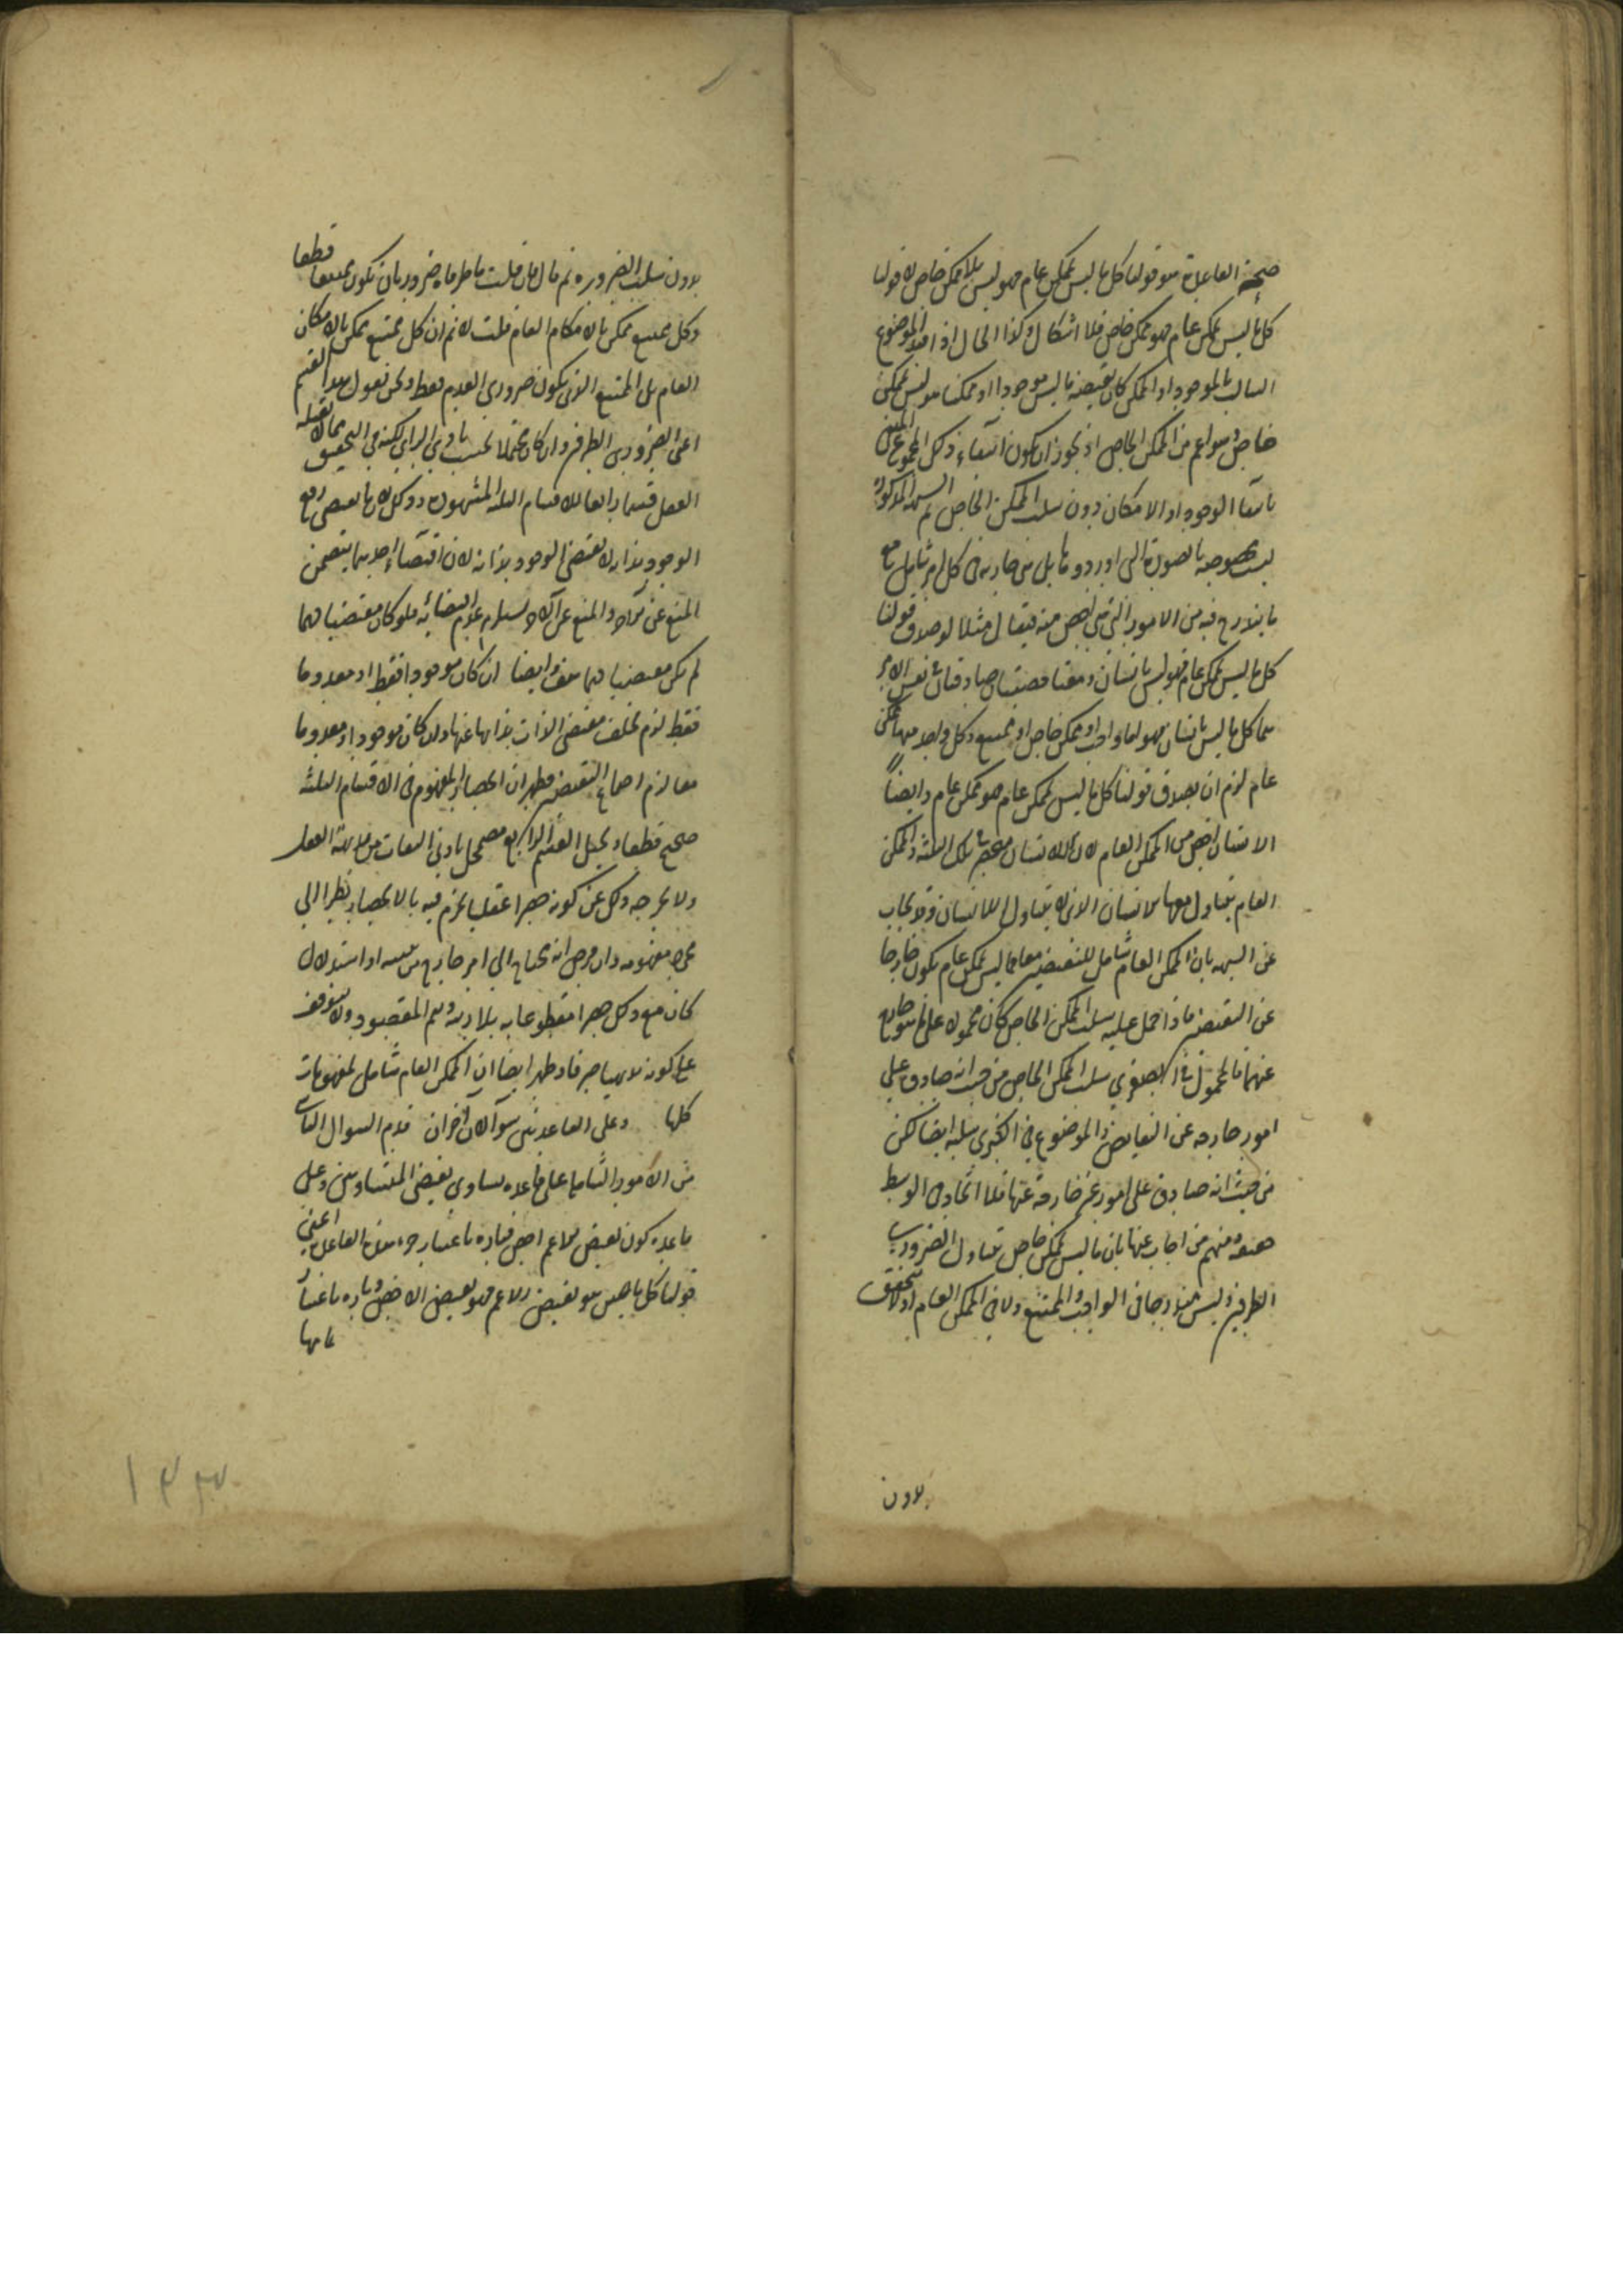 صحة القاعدة هو قولنا كل ما ليس بممكن عام فهو ليس بلا ممكن خاص لا قولنا
كل ما ليس بممكن عام فهو ممكن خاص فلا اشكال وكذا الحال اذا قيد الموضوع
السالب بالموجود او الممكن كان نقيضه ما ليس موجودا او ممكنا هو ليس بممكن
خاص وهو اعم من الممكن الخاص اذ يجوز ان يكون انتفاء ذلك المجموع
بانتفاء الوجود او الامكان دون سلب الممكن الخاص ثم الشبهة المذكورة
ليست مخصوصة بالصورة التي اوردوها بل هي جارية في كل امر شامل مع
ما يندرج فيه من الامور التي هي اخص منه فيقال مثلا لو صدق قولنا
كل ما ليس بممكن عام فهو ليس بانسان ومعنا قضيتان صادقتان في نفس الامر
هما كل ما ليس بانسان فهو اما واجب او ممكن خاص او ممتنع وكل واحد منها ممكن
عام لزم ان يصدق قولنا كل ما ليس بممكن عام فهو ممكن عام وايضا
الانسان اخص من الممكن العام لان اللاانسان في تلك الثلثة والممكن
العام يتناول معها الانسان الذي لا يتناوله اللاانسان وقد يجاب
عن الشبهة بان الممكن العام شامل للنقيضين معا فما ليس بممكن عام يكون خارجا
عن النقيضين فاذا حمل عليه سلب الممكن الخاص كان محمولا على ما هو خارج
عنهما فالمحمول في الصغرى سلب الممكن الخاص من حيث انه صادق على
امور خارجة عن النقايض والموضوع في الكبرى سلبه ايضا لكن
من حيث انه صادق على امور غير خارجة عنها فلا اتحاد في الوسط
ومنهم من اجاب عنها بان ما ليس بممكن خاص يتناول الضروري
الطرفين وليس مندرجا في الواجب والممتنع ولا في الممكن العام اذ لا يتحقق
بدون
بدون سلب الضرورة ثم قال فان قلت ما طرفاه ضروريان يكون ممتنعا قطعا
وكل ممتنع ممكن بالامكان العام قلت لا نم ان كل ممتنع ممكن بالامكان
العام بل الممتنع الذي يكون ضروري العدم فقط ونحن نقول هذا القسم
اعني الضروري الطرفين وان كان محتملا بحسب بادي الراي لكنه في التحقيق مما لا يقبله
العقل قسما رابعا للاقسام الثلثة المشهورة وذلك لان ما يقتضي رفع
الوجود بذاته لا يقتضي الوجود بذاته لان اقتضاء احدهما يتضمن
المنع عن الآخر والمنع عن الآخر يستلزم عدم اقتضائه فلو كان مقتضيا لهما
لم يكن مقتضيا لهما هف وايضا ان كان موجودا فقط او معدوما
فقط لزم تخلف مقتضى الذات بذاتها عنها وان كان موجودا ومعدوما
معا لزم اجتماع النقيضين فظهر ان انحصار المفهوم في الاقسام الثلثة
صحيح قطعا وتخيل القسم الرابع مضمحل بادنى التفات من بديهة العقل
ولا يخرجه ذلك عن كونه حصرا عقليا يجزم فيه بالانحصار نظرا الى
مجرد مفهومه وان فرض انه يحتاج الى امر خارج من تنبيه او استدلال
كان مع ذلك حصرا مقطوعا به بلا ريبة وتم المقصود ولا يتوقف
على كونه بديهيا صرفا وظهر ايضا ان الممكن العام شامل لمفهومات
كلها وعلى القاعدتين سؤالان آخران قدم السوال الثاني
من الامور الشاملة على قاعدة تساوي نقيضي المتساويين وعلى
قاعدة كون نقيض الاعم اخص فتارة باعتبار جزء هذه القاعدة اعني
قولنا كل ما هو نقيض الاعم فهو نقيض الاخص وتارة باعتبار
۱۴۳